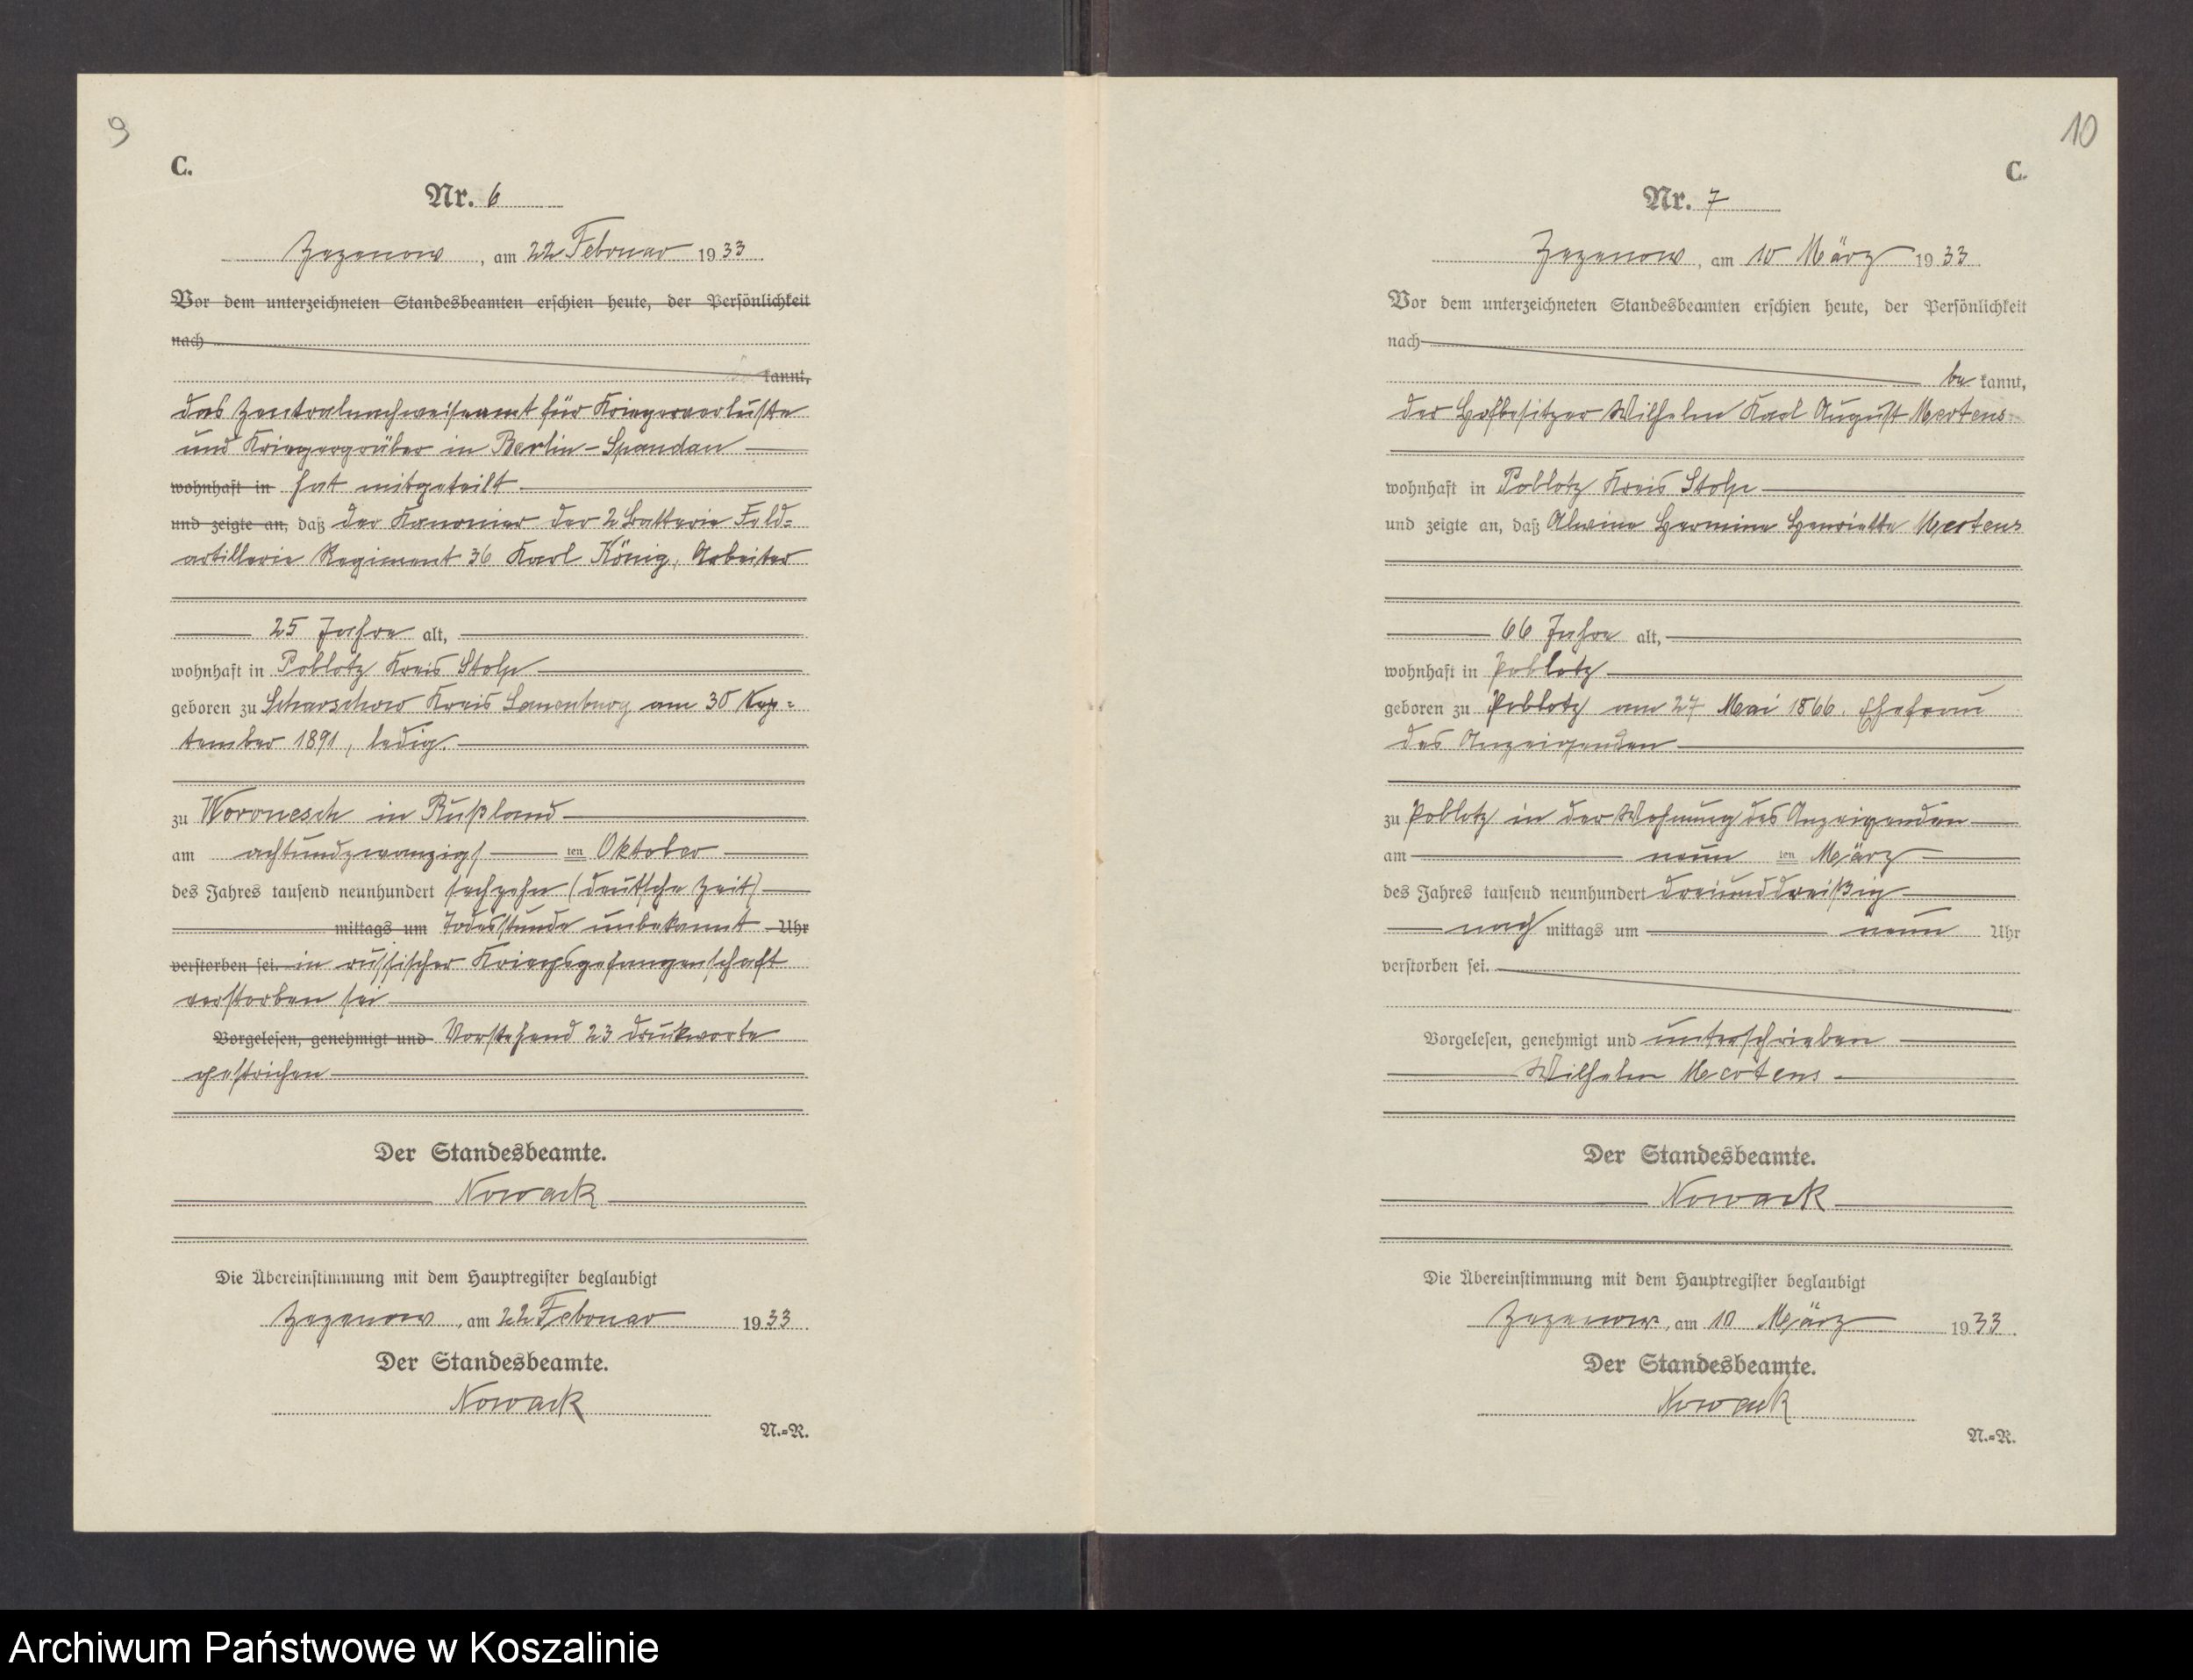 9
C.
Nr. 6
Zezenow, am 22 Februar 1933
Vor dem unterzeichneten Standesbeamten erschien heute, der Persönlichkeit
nach
kannt,
das Zentralnachweiseamt für Kriegerverluste
und Kriegergräber in Berlin-Spandau
wohnhaft in hat mitgeteilt
und zeigte an, daß der Kanonier der 2 Batterie Feld=
artillerie Regiment 36 Karl König, Arbeiter
25 Jahre alt,
wohnhaft in Poblotz Kreis Stolp
geboren zu Scharschow Kreis Lauenburg am 30 Sep=
tember 1891, ledig.
zu Woronesch in Rußland
am achtundzwanzigsten Oktober
des Jahres tausend neunhundert sechzehn (deutsche Zeit)
mittags um Todesstunde unbekannt Uhr
verstorben sei. in russischer Kriegsgefangenschaft
verstorben sei
Vorgelesen, genehmigt und Vorstehend 23 Druckworte
gestrichen
Der Standesbeamte.
Nowack
Die Übereinstimmung mit dem Hauptregister beglaubigt
Zezenow, am 22 Februar 1933.
Der Standesbeamte.
Nowack
N.=R.
10
C.
Nr. 7
Zezenow, am 10 März 1933
Vor dem unterzeichneten Standesbeamten erschien heute, der Persönlichkeit
nach
be kannt,
der Hofbesitzer Wilhelm Karl August Mertens
wohnhaft in Poblotz Kreis Stolp
und zeigte an, daß Alwine Hermine Henriette Mertens
66 Jahre alt,
wohnhaft in Poblotz
geboren zu Poblotz am 27 Mai 1866. Ehefrau
des Anzeigenden
zu Poblotz in der Wohnung des Anzeigenden
am neunten März
des Jahres tausend neunhundert dreiunddreißig
nach mittags um neun Uhr
verstorben sei.
Vorgelesen, genehmigt und unterschrieben
Wilhelm Mertens
Der Standesbeamte.
Nowack
Die Übereinstimmung mit dem Hauptregister beglaubigt
Zezenow, am 10 März 1933.
Der Standesbeamte.
Nowack
N.=R.
Archiwum Państwowe w Koszalinie